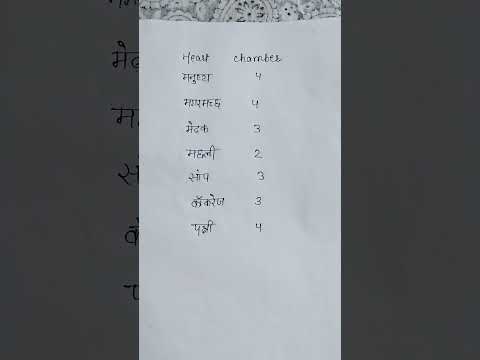 Heart chamber
मनुष्य 4
मगरमच्छ 4
मेढक 3
मछली 2
सांप 3
कॅाकरेज 3
पक्षी 4